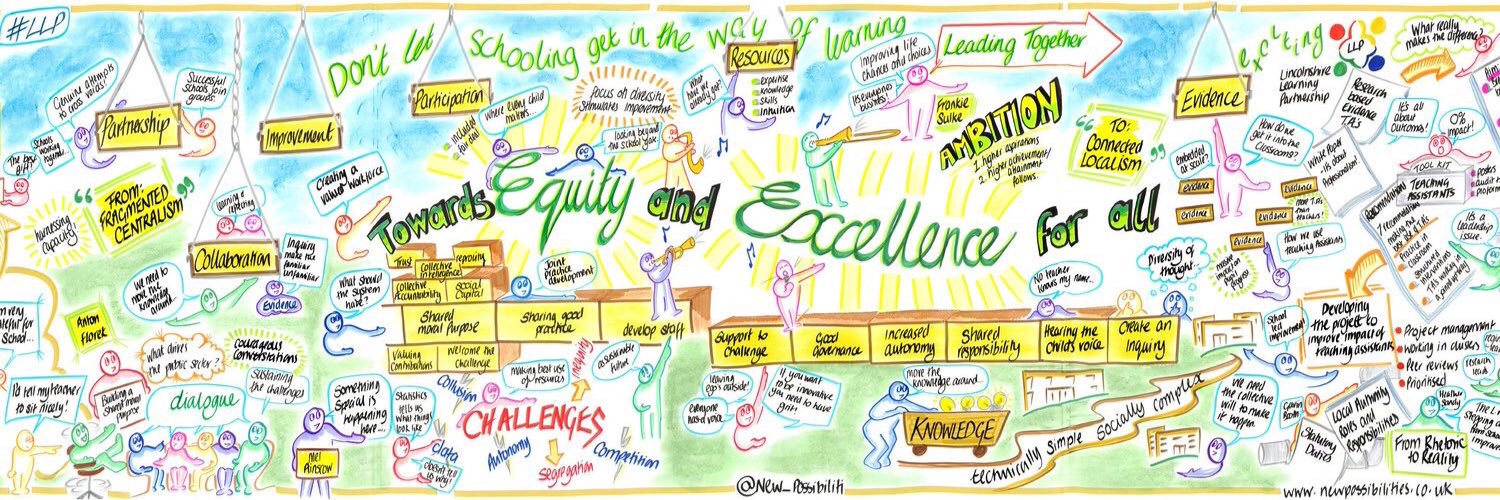 #LLP
Don't let schooling get in the way of learning
Genuine attempts
to cross voids!
Successful
schools join
groups.
Partnership
Schools
working
together...
The best
gift!
Improvement
Participation
included
where every child
matters...
focus on diversity
stimulates improvement
looking beyond
the school gate
Resources
what
have we
already got?
Expertise
knowledge
skills
intuition
Improving life
chances and choices
its everyones
business!
Frankie
Sulke
Leading Together
AMBITION
1. higher aspirations
2. higher achievement/
attainment
follows.
"TO:
Connected
Localism"
Evidence
exciting
LLP
Lincolnshire
Learning
Partnership
What really
makes the difference?
Research
based
Evidence
T.A's
It's all
about
outcomes!
0%
impact!
How do we
get it into the
classrooms?
embedded
at scale?
evidence
evidence
evidence
evidence
Evidence
more T.A's
than
teachers!
How we use
Teaching Assistants
White Paper
TOOL KIT
TEACHING
ASSISTANTS
posters
audit
It's a
leadership
issue.
Recommendations
harnessing
capacity
"FROM:
FRAGMENTED
CENTRALISM"
learning &
reflecting
Collaboration
Creating a
valued workforce
Towards Equity and Excellence for all
Inquiry
make the
familiar
unfamiliar
Evidence
We need to
move the
knowledge
around...
What should
the system
have?
Trust
Collective
intelligence
Collective
Accountability
Social
Capital
Joint
practice
development
Shared
moral purpose
Sharing good
practice
develop staff
Valuing
Contributions
welcome the
challenge
Support to
challenge
Good
governance
Increased
autonomy
Shared
responsibility
Hearing the
child's voice
Create an
inquiry
No teacher
knows my name...
Diversity of
thought...
School
led
improvement
Developing
the project to
improve impact of
teaching assistants
Project management
working in clusters
Peer reviews
Prioritised
Anton
Florek
What drives
the public sector?
Courageous
Conversations
Sustaining
the challenges
I'd tell my teacher
to sit nicely!
Building a
shared moral
purpose
dialogue
Something
special is
happening
here...
Mel
Ainscow
Statistics
tells us
what things
look like
data
Doesn't tell
us why!
Collusion
making best use
of resources
CHALLENGES
Inequity
Autonomy
segregation
Competition
a sustainable
future
leaving
ego's outside!
everyone
has a voice
If you want
to be innovative
you need to have
grit!
move the
knowledge around...
KNOWLEDGE
technically simple socially complex
We need
the collective
will to make
it happen
Gavin
Booth
Statutory
Duties
Local Authority
roles and
Responsibilities
Heather
Sandy
From Rhetoric
to Reality
@New_Possibiliti
www.newpossibilities.co.uk